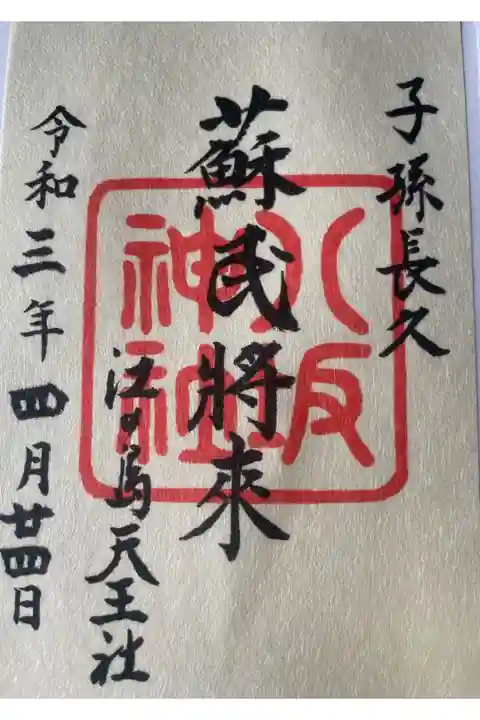 子孫長久
蘇民將來
江の島天王社
令和三年四月廿四日
八坂
神社